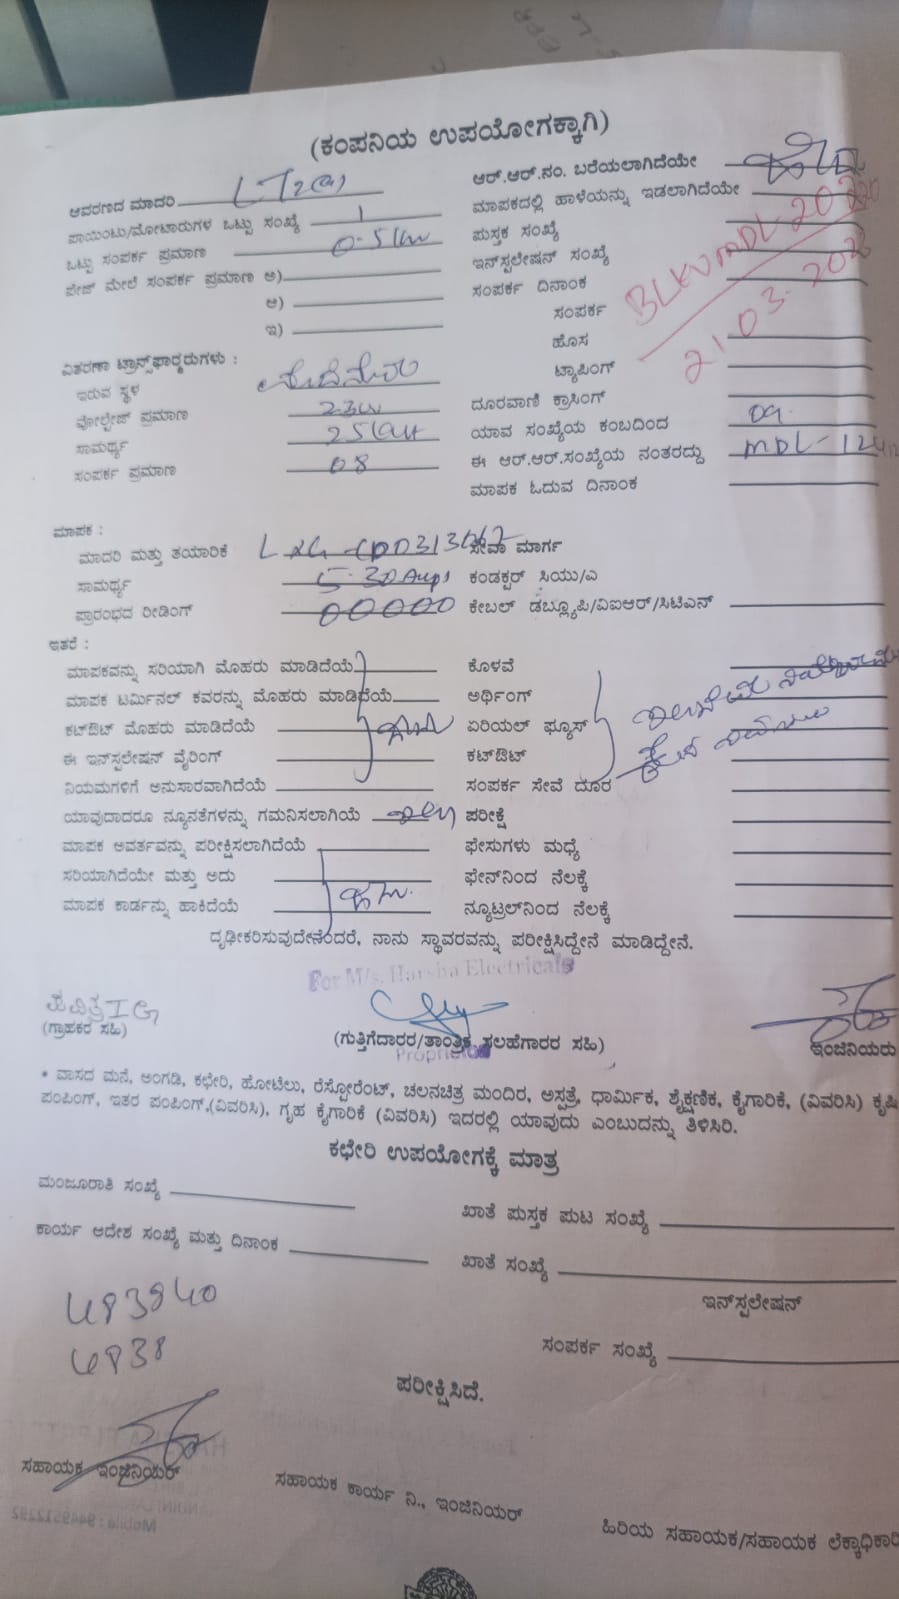 (ಕಂಪನಿಯ ಉಪಯೋಗಕ್ಕಾಗಿ)
ಆವರಣದ ಮಾದರಿ LT2(a)
ಪಾಯಿಂಟು/ಮೋಟಾರುಗಳ ಒಟ್ಟು ಸಂಖ್ಯೆ 1
ಒಟ್ಟು ಸಂಪರ್ಕ ಪ್ರಮಾಣ 0.5 kw
ಫೇಜ್ ಮೇಲೆ ಸಂಪರ್ಕ ಪ್ರಮಾಣ ಅ)
ಆ)
ಇ)
ಆರ್.ಆರ್.ನಂ. ಬರೆಯಲಾಗಿದೆಯೇ
ಮಾಪಕದಲ್ಲಿ ಹಾಳೆಯನ್ನು ಇಡಲಾಗಿದೆಯೇ
ಪುಸ್ತಕ ಸಂಖ್ಯೆ
ಇನ್‌ಸ್ಟಲೇಷನ್ ಸಂಖ್ಯೆ
ಸಂಪರ್ಕ ದಿನಾಂಕ
ಸಂಪರ್ಕ
ಹೊಸ
ಟ್ಯಾಪಿಂಗ್
ದೂರವಾಣಿ ಕ್ರಾಸಿಂಗ್
ಯಾವ ಸಂಖ್ಯೆಯ ಕಂಬದಿಂದ 09.
ಈ ಆರ್.ಆರ್.ಸಂಖ್ಯೆಯ ನಂತರದ್ದು
ಮಾಪಕ ಓದುವ ದಿನಾಂಕ
ವಿತರಣಾ ಟ್ರಾನ್ಸ್‌ಫಾರ್ಮರುಗಳು :
ಇರುವ ಸ್ಥಳ
ವೋಲ್ಟೇಜ್ ಪ್ರಮಾಣ
ಸಾಮರ್ಥ್ಯ
ಸಂಪರ್ಕ ಪ್ರಮಾಣ 08
ಮಾಪಕ :
ಮಾದರಿ ಮತ್ತು ತಯಾರಿಕೆ
ಸಾಮರ್ಥ್ಯ 5-30 Amps
ಪ್ರಾರಂಭದ ರೀಡಿಂಗ್ 00000
ಸೇವಾ ಮಾರ್ಗ
ಕಂಡಕ್ಟರ್ ಸಿಯು/ಎ
ಕೇಬಲ್ ಡಬ್ಲ್ಯೂಪಿ/ವಿಐಆರ್/ಸಿಟಿಎನ್
ಇತರೆ :
ಮಾಪಕವನ್ನು ಸರಿಯಾಗಿ ಮೊಹರು ಮಾಡಿದೆಯೆ
ಮಾಪಕ ಟರ್ಮಿನಲ್ ಕವರನ್ನು ಮೊಹರು ಮಾಡಿದೆಯೆ
ಕಟ್‌ಔಟ್ ಮೊಹರು ಮಾಡಿದೆಯೆ
ಈ ಇನ್‌ಸ್ಟಲೇಷನ್ ವೈರಿಂಗ್
ನಿಯಮಗಳಿಗೆ ಅನುಸಾರವಾಗಿದೆಯೆ
ಯಾವುದಾದರೂ ನ್ಯೂನತೆಗಳನ್ನು ಗಮನಿಸಲಾಗಿಯೆ
ಮಾಪಕ ಆವರ್ತವನ್ನು ಪರೀಕ್ಷಿಸಲಾಗಿದೆಯೆ
ಸರಿಯಾಗಿದೆಯೇ ಮತ್ತು ಅದು
ಮಾಪಕ ಕಾರ್ಡನ್ನು ಹಾಕಿದೆಯೆ
ಕೊಳವೆ
ಅರ್ಥಿಂಗ್
ಏರಿಯಲ್ ಫ್ಯೂಸ್
ಕಟ್‌ಔಟ್
ಸಂಪರ್ಕ ಸೇವೆ ದೂರ
ಪರೀಕ್ಷೆ
ಫೇಸುಗಳು ಮಧ್ಯೆ
ಫೇಸ್‌ನಿಂದ ನೆಲಕ್ಕೆ
ನ್ಯೂಟ್ರಲ್‌ನಿಂದ ನೆಲಕ್ಕೆ
ದೃಢೀಕರಿಸುವುದೇನೆಂದರೆ, ನಾನು ಸ್ಥಾವರವನ್ನು ಪರೀಕ್ಷಿಸಿದ್ದೇನೆ ಮಾಡಿದ್ದೇನೆ.
For M/s. Harsha Electricals
(ಗ್ರಾಹಕರ ಸಹಿ)
(ಗುತ್ತಿಗೆದಾರರ/ತಾಂತ್ರಿಕ ಸಲಹೆಗಾರರ ಸಹಿ)
ಇಂಜಿನಿಯರು
Proprietor
* ವಾಸದ ಮನೆ, ಅಂಗಡಿ, ಕಛೇರಿ, ಹೋಟೆಲು, ರೆಸ್ಟೋರೆಂಟ್, ಚಲನಚಿತ್ರ ಮಂದಿರ, ಆಸ್ಪತ್ರೆ, ಧಾರ್ಮಿಕ, ಶೈಕ್ಷಣಿಕ, ಕೈಗಾರಿಕೆ, (ವಿವರಿಸಿ) ಕೃಷಿ
ಪಂಪಿಂಗ್, ಇತರ ಪಂಪಿಂಗ್,(ವಿವರಿಸಿ), ಗೃಹ ಕೈಗಾರಿಕೆ (ವಿವರಿಸಿ) ಇದರಲ್ಲಿ ಯಾವುದು ಎಂಬುದನ್ನು ತಿಳಿಸಿರಿ.
ಕಛೇರಿ ಉಪಯೋಗಕ್ಕೆ ಮಾತ್ರ
ಮಂಜೂರಾತಿ ಸಂಖ್ಯೆ
ಖಾತೆ ಪುಸ್ತಕ ಪುಟ ಸಂಖ್ಯೆ
ಕಾರ್ಯ ಆದೇಶ ಸಂಖ್ಯೆ ಮತ್ತು ದಿನಾಂಕ
ಖಾತೆ ಸಂಖ್ಯೆ
ಇನ್‌ಸ್ಟಲೇಷನ್
483840
4838
ಸಂಪರ್ಕ ಸಂಖ್ಯೆ
ಪರೀಕ್ಷಿಸಿದೆ.
ಸಹಾಯಕ ಇಂಜಿನಿಯರ್
ಸಹಾಯಕ ಕಾರ್ಯ ನಿ., ಇಂಜಿನಿಯರ್
ಹಿರಿಯ ಸಹಾಯಕ/ಸಹಾಯಕ ಲೆಕ್ಕಾಧಿಕಾರಿ